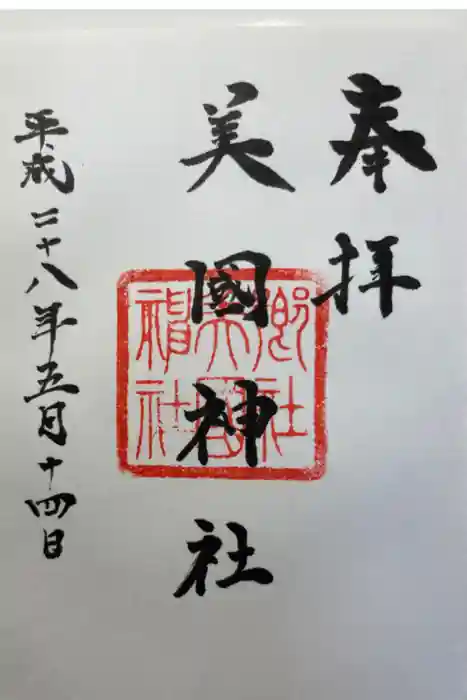 奉拝
美國神社
郷社
美國
神社
平成二十八年五月十四日